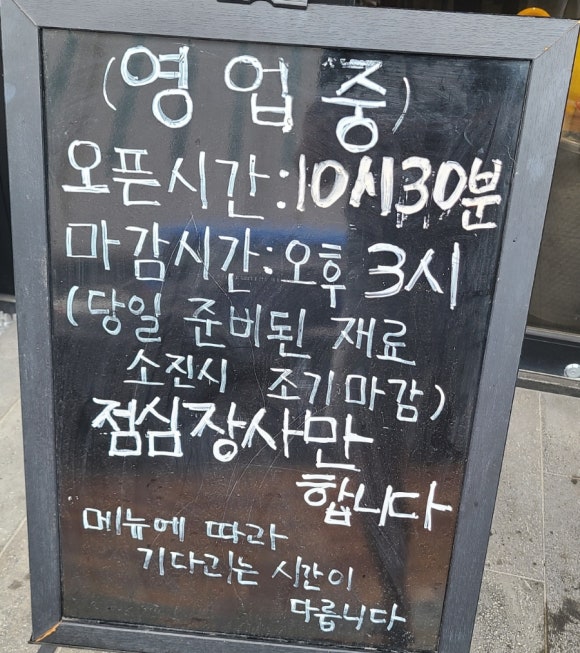 (영업중)
오픈시간:10시30분
마감시간:오후 3시
(당일 준비된 재료
소진시 조기마감)
점심장사만
합니다
메뉴에 따라
기다리는 시간이
다릅니다